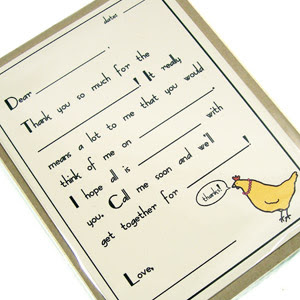 date:
Dear ____________.
Thank you so much for the
____________! It really
means a lot to me that you would
think of me on ____________ with
I hope all is ____________
you. Call me soon and we'll
get together for ____________!
thanks!!
Love,
____________